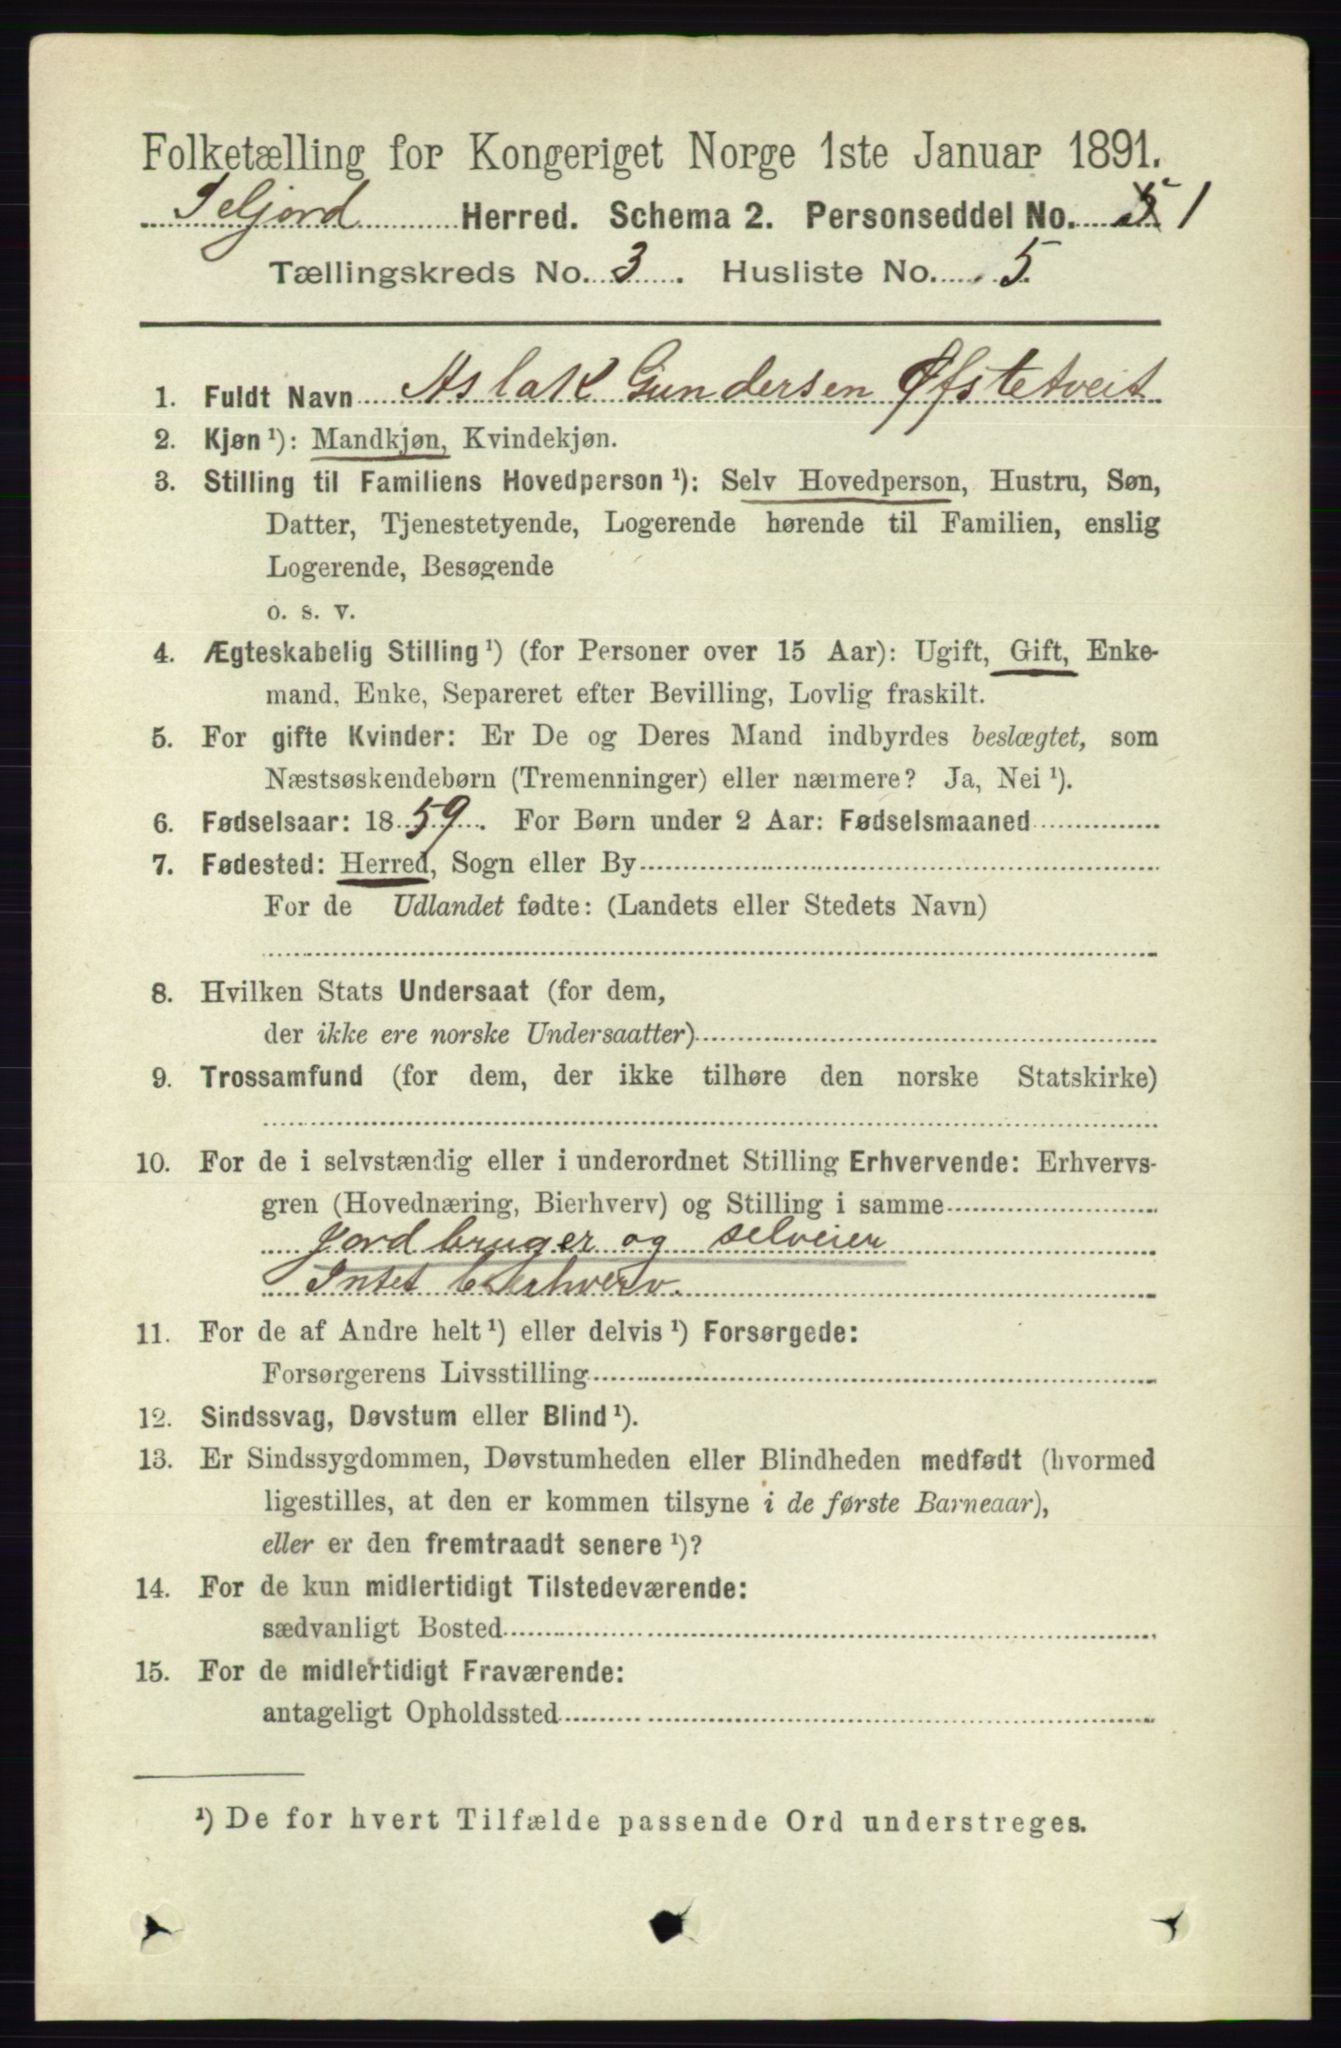 Folketælling for Kongeriget Norge 1ste Januar 1891.
Seljord Herred. Schema 2. Personseddel No. 1
Tællingskreds No. 3. Husliste No. 5.
1. Fuldt Navn Aslak Gundersen Øfstetveit
2. Kjøn ¹): Mandkjøn, Kvindekjøn.
3. Stilling til Familiens Hovedperson ¹): Selv Hovedperson, Hustru, Søn,
Datter, Tjenestetyende, Logerende hørende til Familien, enslig
Logerende, Besøgende
o. s. v.
4. Ægteskabelig Stilling ¹) (for Personer over 15 Aar): Ugift, Gift, Enke-
mand, Enke, Separeret efter Bevilling, Lovlig fraskilt.
5. For gifte Kvinder: Er De og Deres Mand indbyrdes beslægtet, som
Næstsøskendebørn (Tremenninger) eller nærmere? Ja, Nei ¹).
6. Fødselsaar: 1859. For Børn under 2 Aar: Fødselsmaaned
7. Fødested: Herred, Sogn eller By
For de Udlandet fødte: (Landets eller Stedets Navn)
8. Hvilken Stats Undersaat (for dem,
der ikke ere norske Undersaatter)
9. Trossamfund (for dem, der ikke tilhøre den norske Statskirke)
10. For de i selvstændig eller i underordnet Stilling Erhvervende: Erhvervs-
gren (Hovednæring, Bierhverv) og Stilling i samme
Jordbruger og selveier
Intet bierhverv.
11. For de af Andre helt ¹) eller delvis ¹) Forsørgede:
Forsørgerens Livsstilling
12. Sindssvag, Døvstum eller Blind ¹).
13. Er Sindssygdommen, Døvstumheden eller Blindheden medfødt (hvormed
ligestilles, at den er kommen tilsyne i de første Barneaar),
eller er den fremtraadt senere ¹)?
14. For de kun midlertidigt Tilstedeværende:
sædvanligt Bosted
15. For de midlertidigt Fraværende:
antageligt Opholdssted
¹) De for hvert Tilfælde passende Ord understreges.